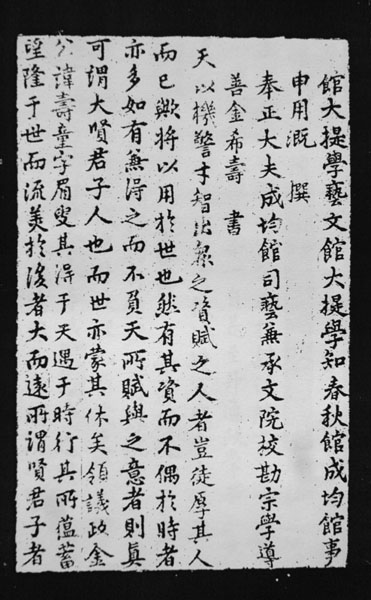 館大提學藝文館大提學知春秋館成均館事
申用溉 撰
奉正大夫成均館司藝兼承文院校勘宗學導
善金希壽 書
天以機警才智出衆之資賦之人者豈徒厚其人
而已歟將以用於世也然有其資而不偶於時者
亦多如有兼得之而不負天所賦與之意者則眞
可謂大賢君子人也而世亦蒙其休矣領議政金
公諱壽童字眉叟其得于天遇于時行其所蘊蓄
望隆于世而流美於後者大而遠所謂賢君子者